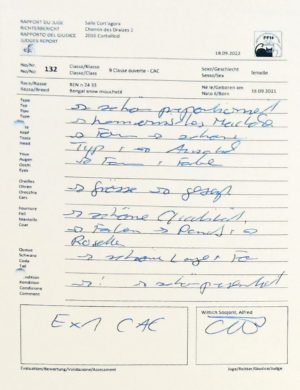 RAPPORT DU JUGE
RICHTERBERICHT
RAPPORTO DEL GIUDICE
JUDGES REPORT
Salle Cort'agora
Chemin des Draizes 2
2016 Cortaillod
FFH
18.09.2022
No/Nr
No/No 132
Classe/Klasse
Classe/Class 9 Classe ouverte - CAC
Sexe/Geschlecht
Sesso/Sex femelle
Race/Rasse
Razza/Breed
BEN n 24 33
Bengal snow moucheté
Né/e/Geboren am
Nato il/Born 18.09.2021
Type
Typ
Tipo
Type
schön proportioniert
harmonisches
Tête
Kopf
Testa
Head
Form schöne
Typ
Yeux
Augen
Occhi
Eyes
Form Farbe
Oreilles
Ohren
Orecchie
Ears
Grösse gesetzt
Fourrure
Fell
Mantello
Coat
schöne Qualität,
Farben
Rosetten
Queue
Schwanz
Coda
Tail
schöne Länge
Kondition
Kondizione
Condition
Comments
schön präsentiert
Ex 1 CAC
Wittich Soojani, Alfred
Evaluation/Bewertung/Validazione/Assessment
Juge/Richter/Giudice/Judge